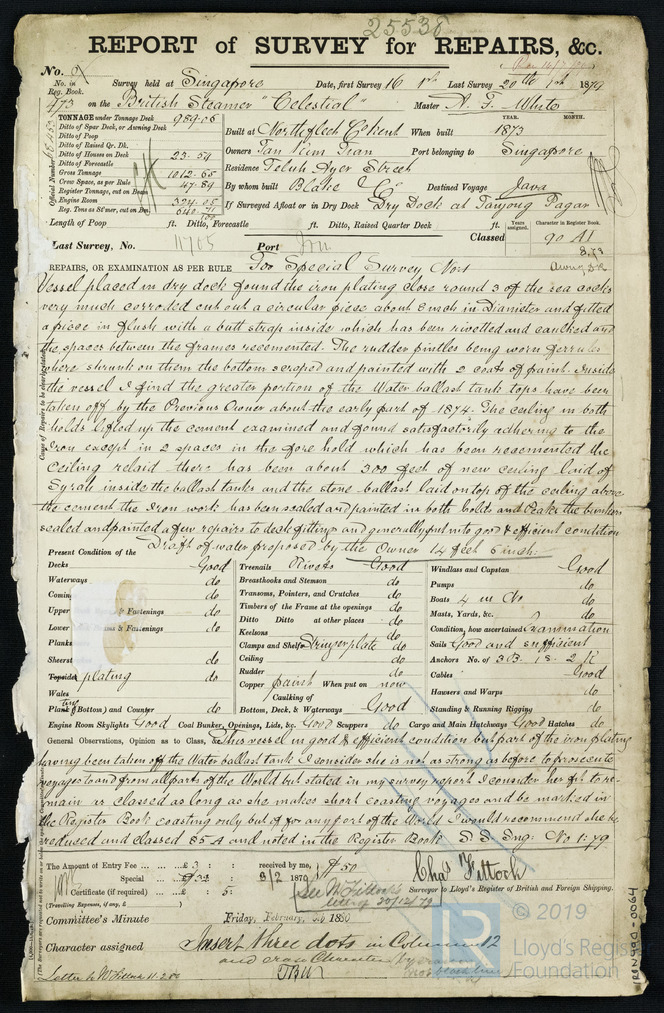 25538
REPORT of SURVEY for REPAIRS, &c.
No. 9
No. in Reg. Book.
Survey held at Singapore Date, first Survey 16 Last Survey 20th 1879
473 on the British Steamer "Celestial" Master A. F. White
TONNAGE under Tonnage Deck 989.06
Ditto of Spar Deck, or Awning Deck
Ditto of Poop
Ditto of Raised Qr. Dk.
Ditto of Houses on Deck 23.59
Ditto of Forecastle
Gross Tonnage 1012.65
Crew Space, as per Rule 47.89
Register Tonnage, cut on Beam
Engine Room 324.05
Reg. Tons as St'mer, cut on Bm. 640.71
Official Number
Built at Northfleet Kent When built YEAR. 1873 MONTH.
Owners Tan Kim Tian Port belonging to Singapore
Residence Teluk Ayer Street
By whom built Blake & Co Destined Voyage Java
If Surveyed Afloat or in Dry Dock Dry Dock at Tanjong Pagar
Length of Poop ft. Ditto, Forecastle ft. Ditto, Raised Quarter Deck ft.
Years assigned. Character in Register Book.
Last Survey, No. 11705 Port Classed 90 A1
8.73
REPAIRS, OR EXAMINATION AS PER RULE For Special Survey No 1
Vessel placed in dry dock found the iron plating close round 3 of the sea cocks
very much corroded cut out a circular piece about 8 inch in Diameter and fitted
a piece in flush with a butt strap inside which has been rivetted and caulked and
the spaces between the frames recemented. The rudder pintles being worn ferrules
where shrunk on them the bottom scraped and painted with 2 coats of paint. Inside
the vessel I find the greater portion of the Water ballast tank tops have been
taken off by the Previous Owner about the early part of 1874. The ceiling in both
holds lifted up the cement examined and found satisfactorily adhering to the
iron except in 2 spaces in the fore hold which has been recemented the
ceiling relaid there has been about 300 feet of new ceiling laid of
Syrah inside the ballast tanks and the stone ballast laid on top of the ceiling above
the cement the Iron work has been scaled and painted in both holds and the bunkers
scaled and painted a few repairs to deck fittings and generally put into good & efficient condition
Draft of water proposed by the Owner 14 feet 6 inch
Present Condition of the
Decks Good Treenails Rivets Good Windlass and Capstan Good
Waterways do Breasthooks and Stemson do Pumps do
Coming do Transoms, Pointers, and Crutches do Boats 4 in No do
Upper & Fastenings do Timbers of the Frame at the openings do Masts, Yards, &c. do
Lower Beams & Fastenings do Ditto Ditto at other places do Condition, how ascertained Examination
Planks do Keelsons do Sails Good and sufficient
Sheerst do Clamps and Shelfs Stringer plate do Anchors No. of 3 B. 1 S. 2 K
Topsides plating do Ceiling do Cables Good
Wales do Rudder do Hawsers and Warps do
Plank (Bottom) and Counter do Copper paint When put on now Standing & Running Rigging do
Caulking of Bottom, Deck, & Waterways Good
Engine Room Skylights Good Coal Bunker, Openings, Lids, &c. Good Scuppers do Cargo and Main Hatchways Good Hatches do
General Observations, Opinion as to Class, &c. This vessel in good & efficient condition but part of the iron plating
having been taken off the Water ballast tank I consider she is not as strong as before to prosecute
voyages to and from all parts of the World but stated in my survey report I consider her fit to re-
main as classed as long as she makes short coasting voyages and be marked in
the Register Book coasting only but if for any port of the World I would recommend she be
reduced and classed 85 A and noted in the Register Book S. S. Sng: No 1. 79
The Amount of Entry Fee £ 3 : : received by me,
Special £
Certificate (if required) £ : 5 :
(Travelling Expenses, if any, £ )
$50
See Mr Fittock's letter of 30/12/79
Chas Fittock
Surveyor to Lloyd's Register of British and Foreign Shipping.
Committee's Minute Friday, February, 1880
Character assigned Insert three dots in Column 12
Letter to Mr Fittock 11.2.80
IRON490-0064
© 2019
LR
Lloyd's Register
Foundation